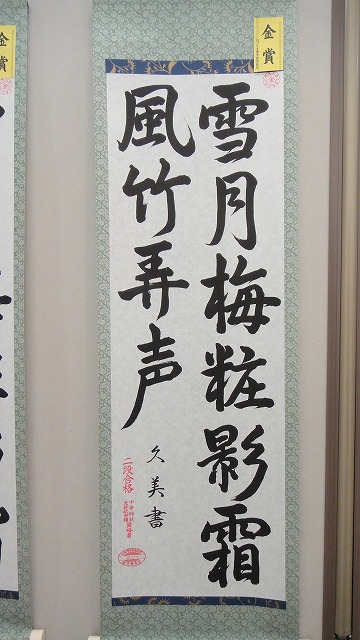 雪月梅粧影霜
風竹弄声
久美書
二段合格
金賞
金賞